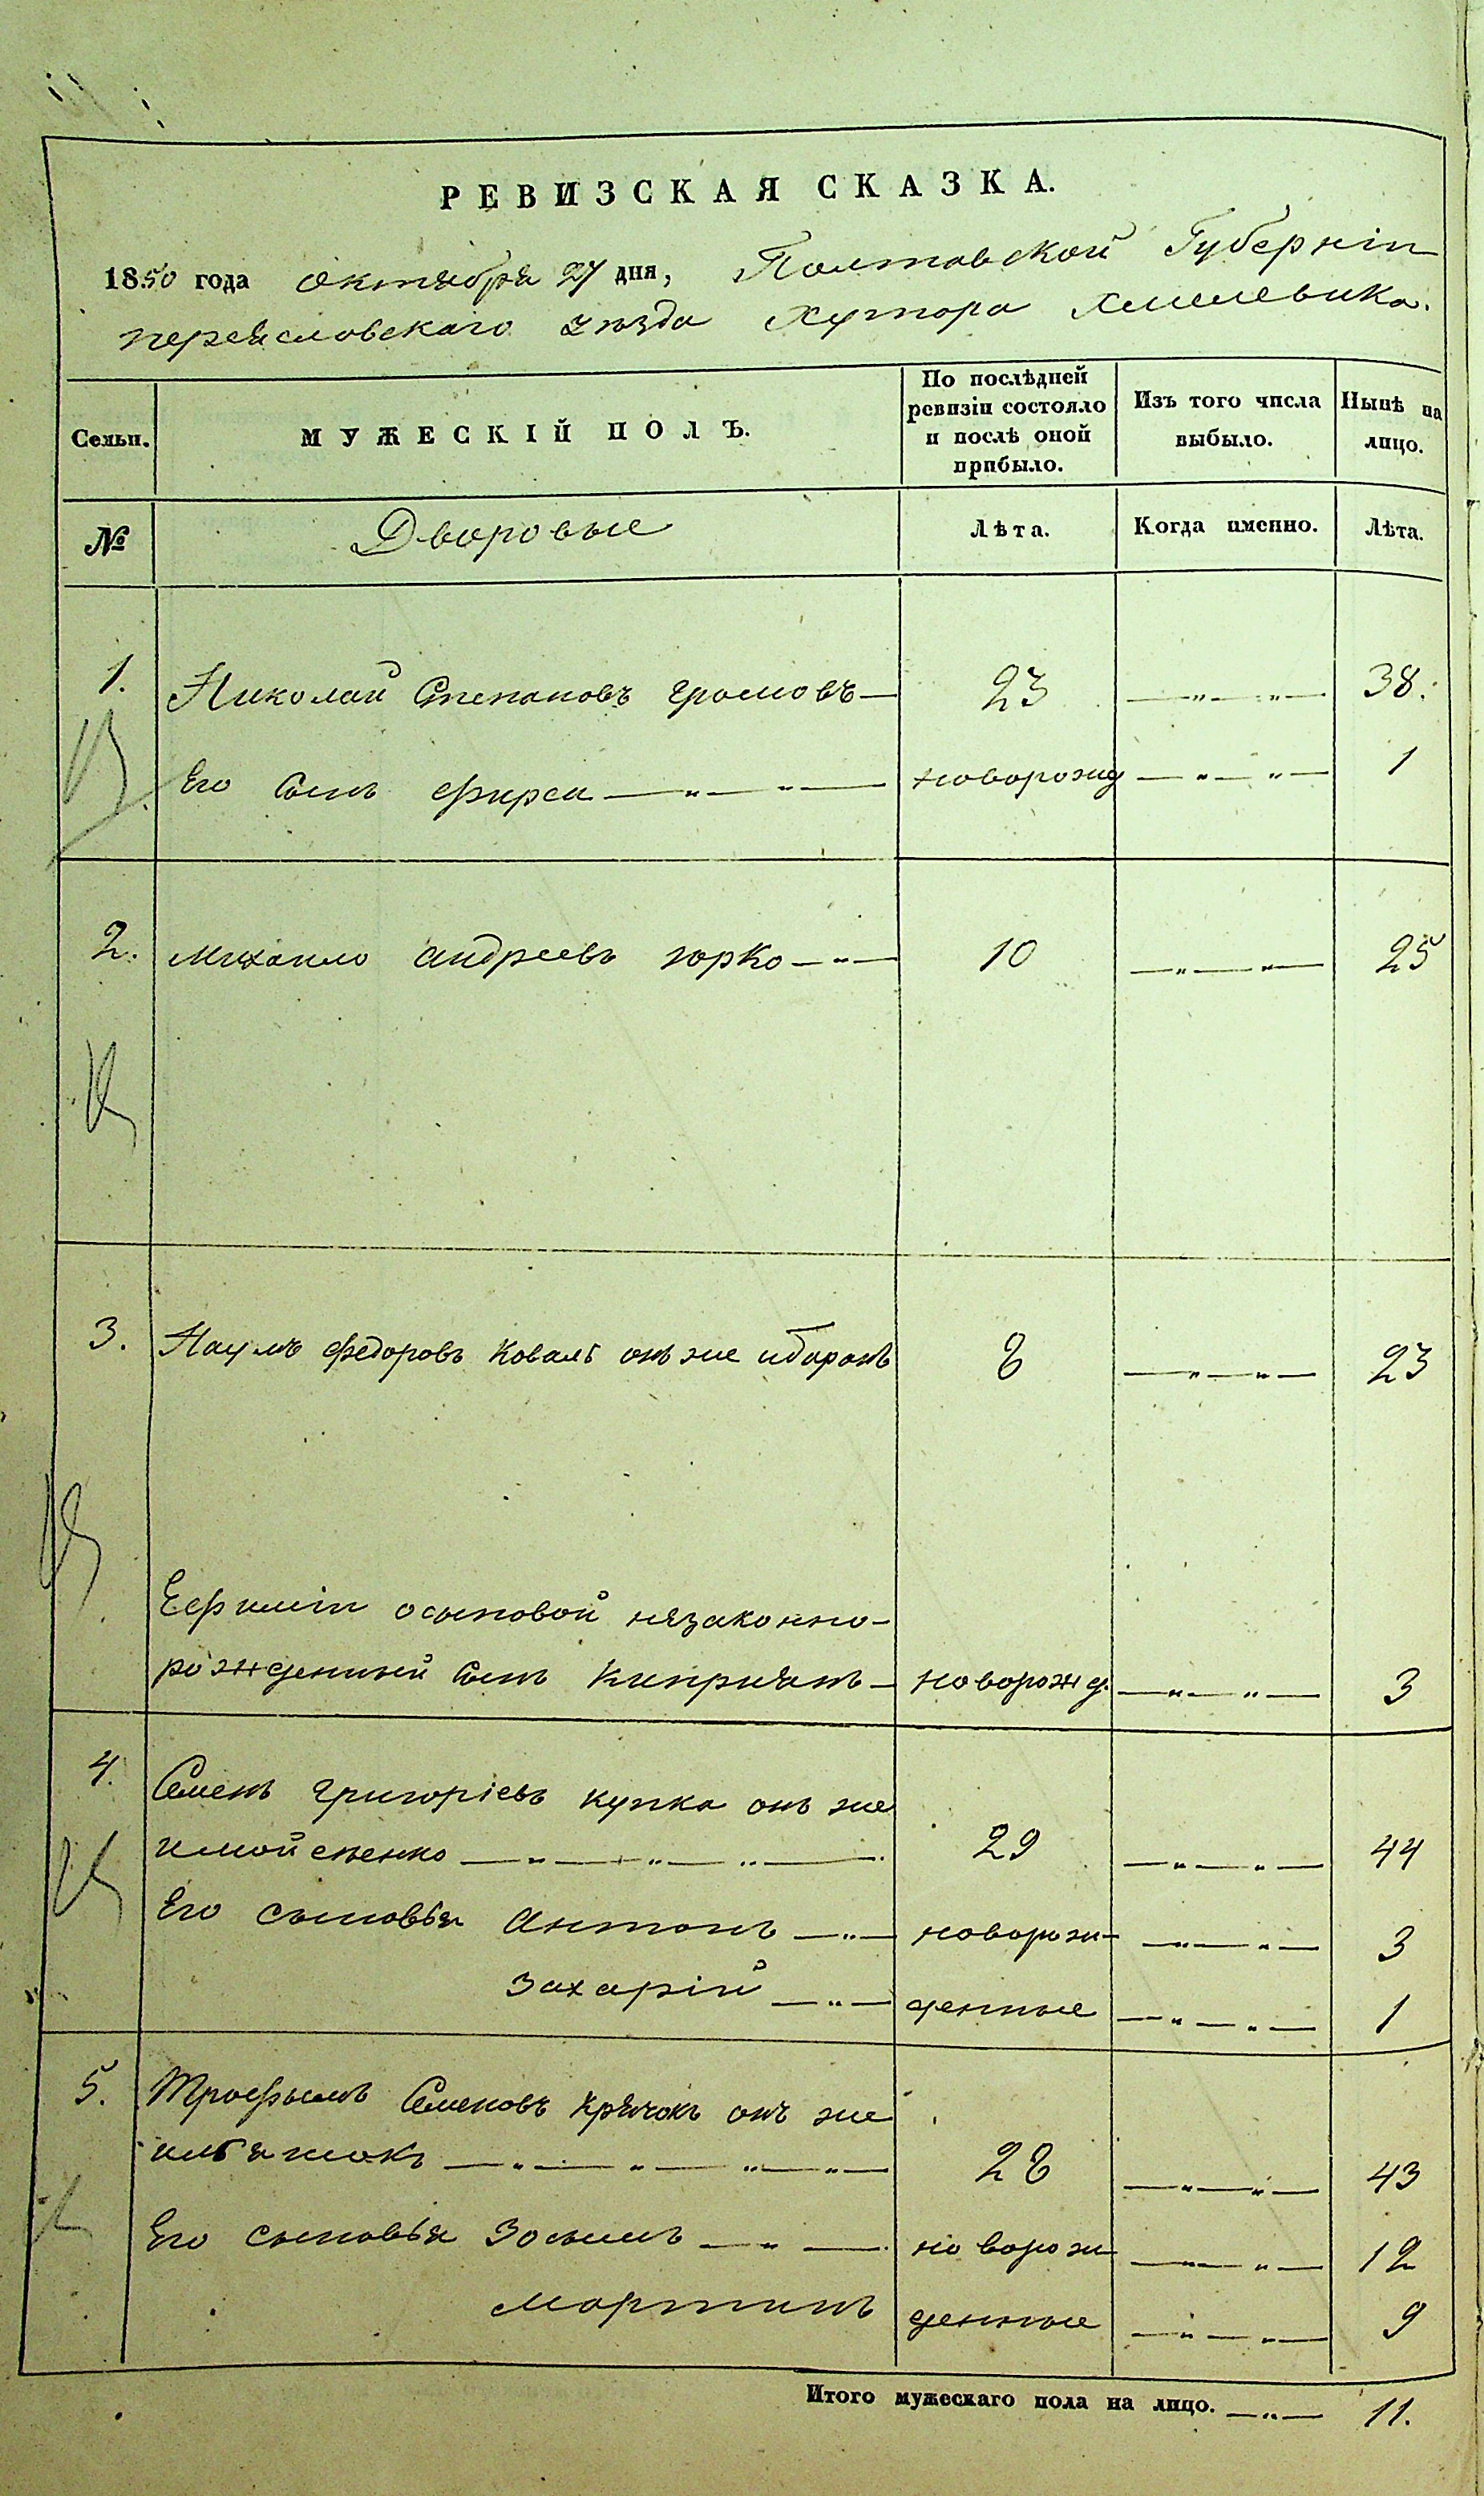 РЕВИЗСКАЯ СКАЗКА.
1850 года октября 27 дня, Полтавской Губерніи
переяславскаго уѣзда хутора хмелевика.
Семьи. МУЖЕСКІЙ ПОЛЪ. По послѣдней ревизіи состояло и послѣ оной прибыло. Изъ того числа выбыло. Нынѣ на лицо.
№ Дворовые Лѣта. Когда именно. Лѣта.
1. Николай Степановъ громовъ 23 38.
Его Сынъ фирсъ новорожд 1
2. михаило андреевъ юрко 10 25
3. Наумъ федоровъ коваль онъ же 8 23
Ефиміи осиповой незаконно-
рожденный Сынъ киприянъ новорожд. 3
4. Семенъ григоріевъ купка онъ же
29 44
Его сыновья антонъ новорож- 3
захарій денные 1
5. Трофымъ Семеновъ крячокъ онъ же
28 43
Его сыновья Зосимъ новорож 12
мартинъ денные 9
Итого мужескаго пола на лицо. 11.